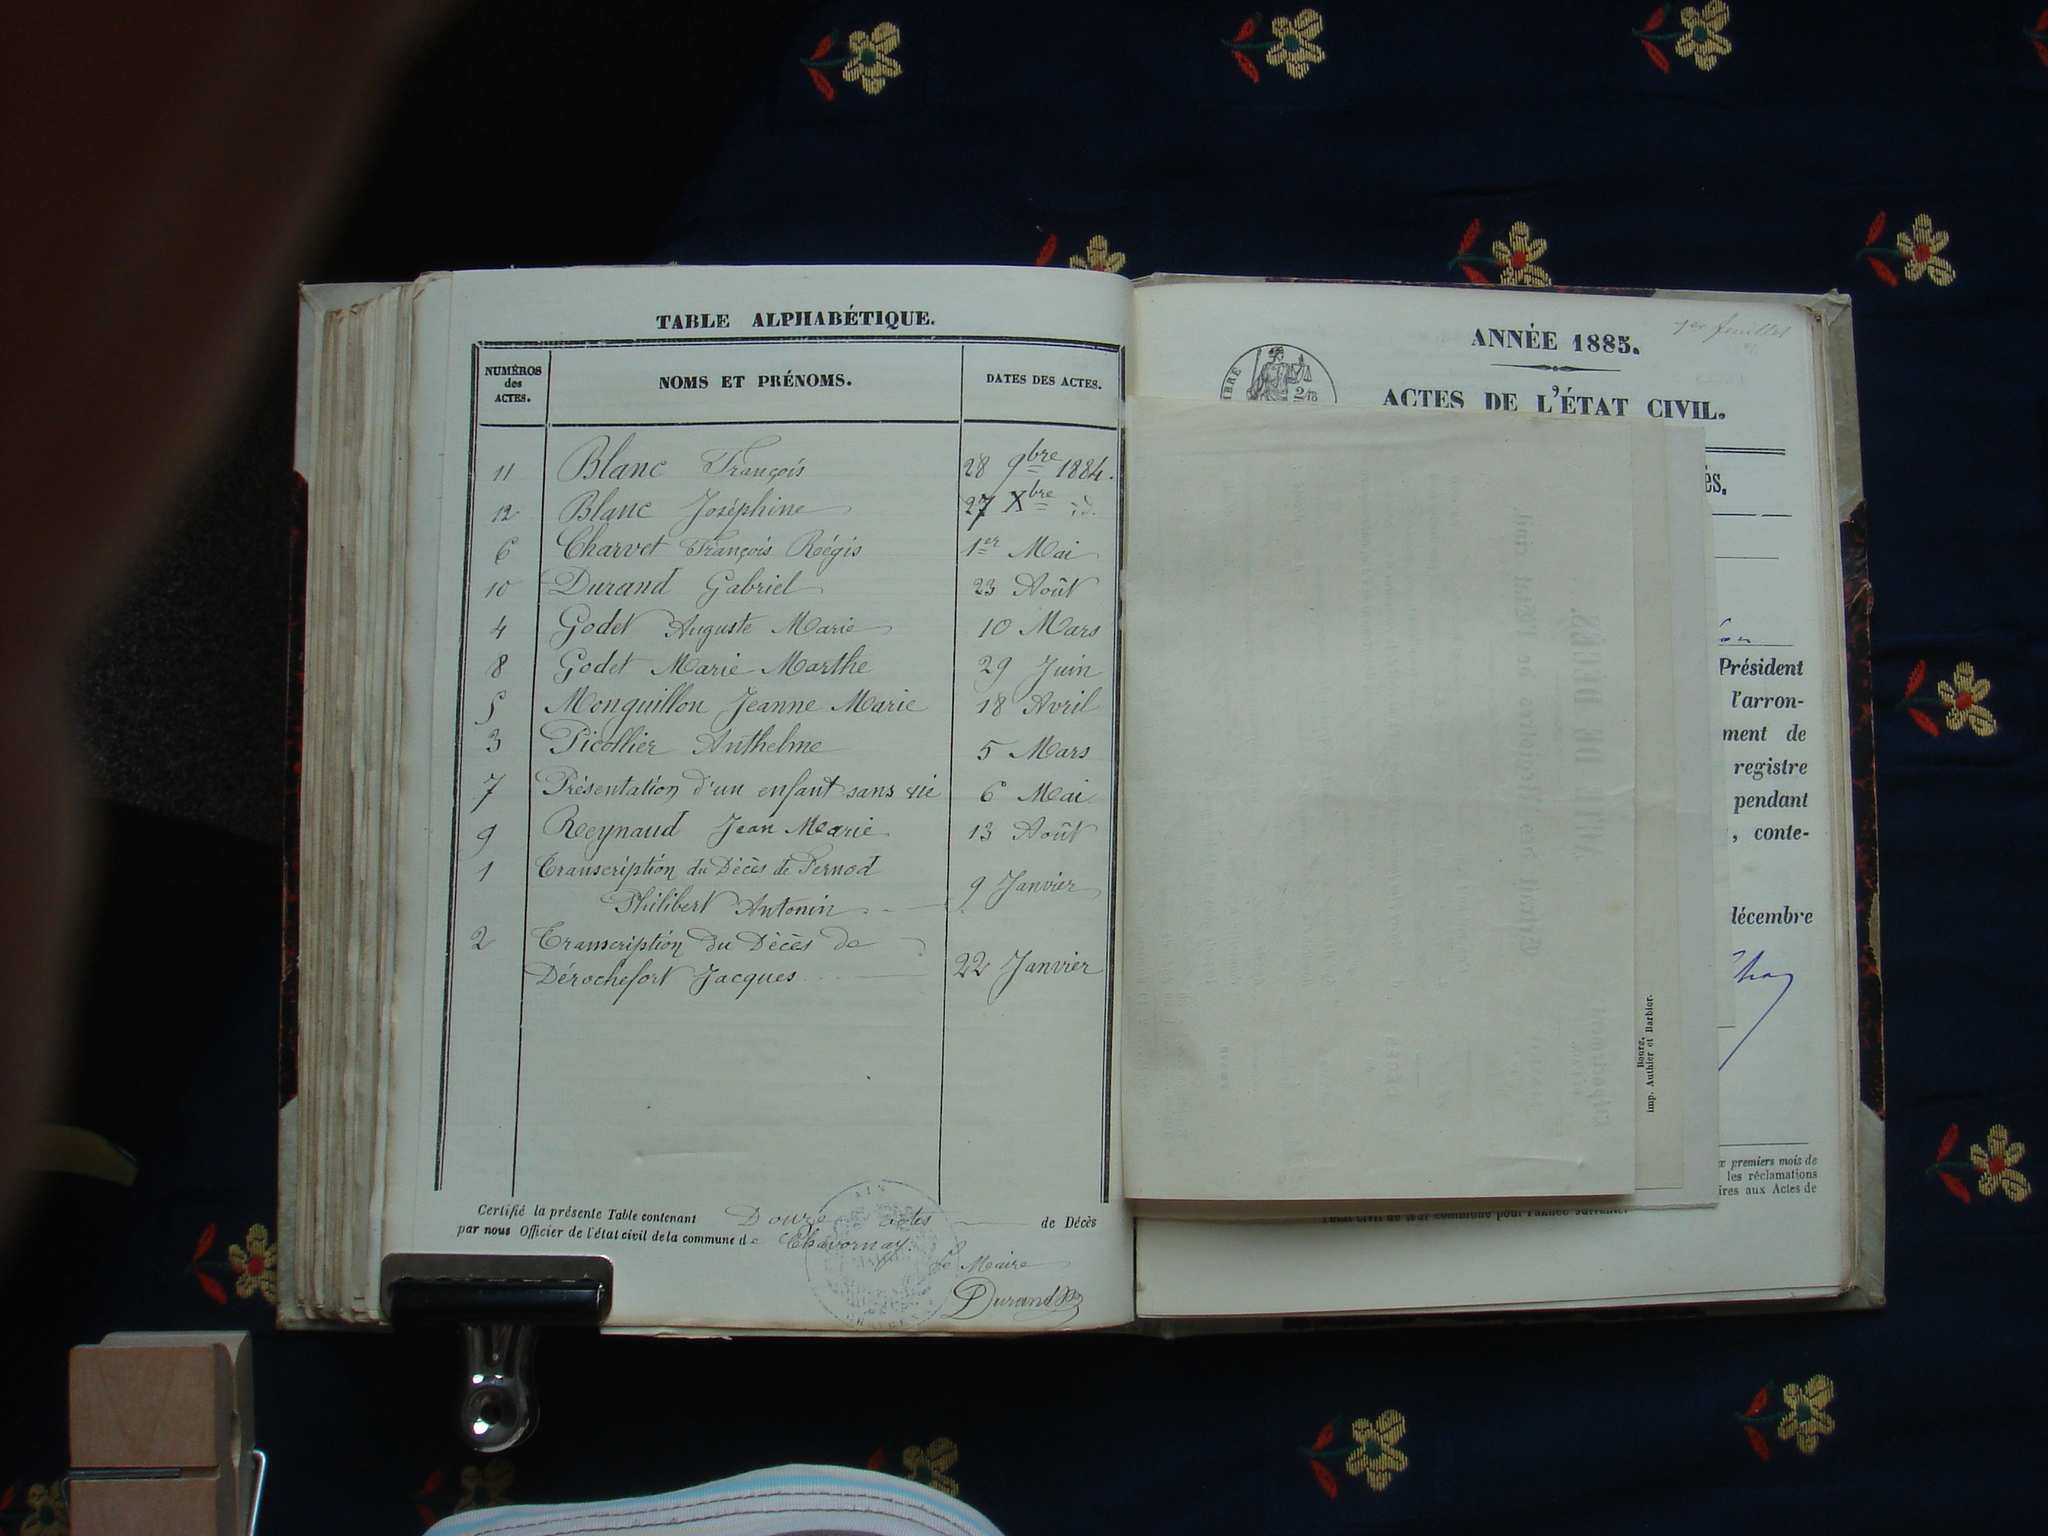 TABLE ALPHABÉTIQUE.
NUMÉROS des ACTES. NOMS ET PRÉNOMS. DATES DES ACTES.
11 Blanc François 28 9bre 1884.
12 Blanc Joséphine 27 Xbre id.
6 Charvet François Régis 1er Mai
10 Durand Gabriel 23 Août
4 Godet Auguste Marie 10 Mars
8 Godet Marie Marthe 29 Juin
5 Monguillon Jeanne Marie 18 Avril
3 Picollier Anthelme 5 Mars
7 Présentation d'un enfant sans vie 6 Mai
9 Reynaud Jean Marie 13 Août
1 Transcription du Décès de Pernod
Philibert Antonin 9 Janvier
2 Transcription du Décès de
Dérochefort Jacques 22 Janvier
Certifié la présente Table contenant Douze actes de Décès
par nous Officier de l'état civil de la commune de Chavornay.
Le Maire
Durand
1er feuillet
ANNÉE 1885.
ACTES DE L'ÉTAT CIVIL.
és.
Président
l'arron-
ment de
registre
pendant
, conte-
décembre
Bourg,
imp. Authier et Barbier.
premiers mois de
les réclamations
ires aux Actes de
l'état civil de leur commune pour l'année suivante.